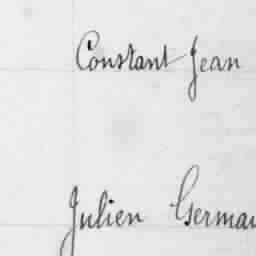 Constant Jean
Julien Germai